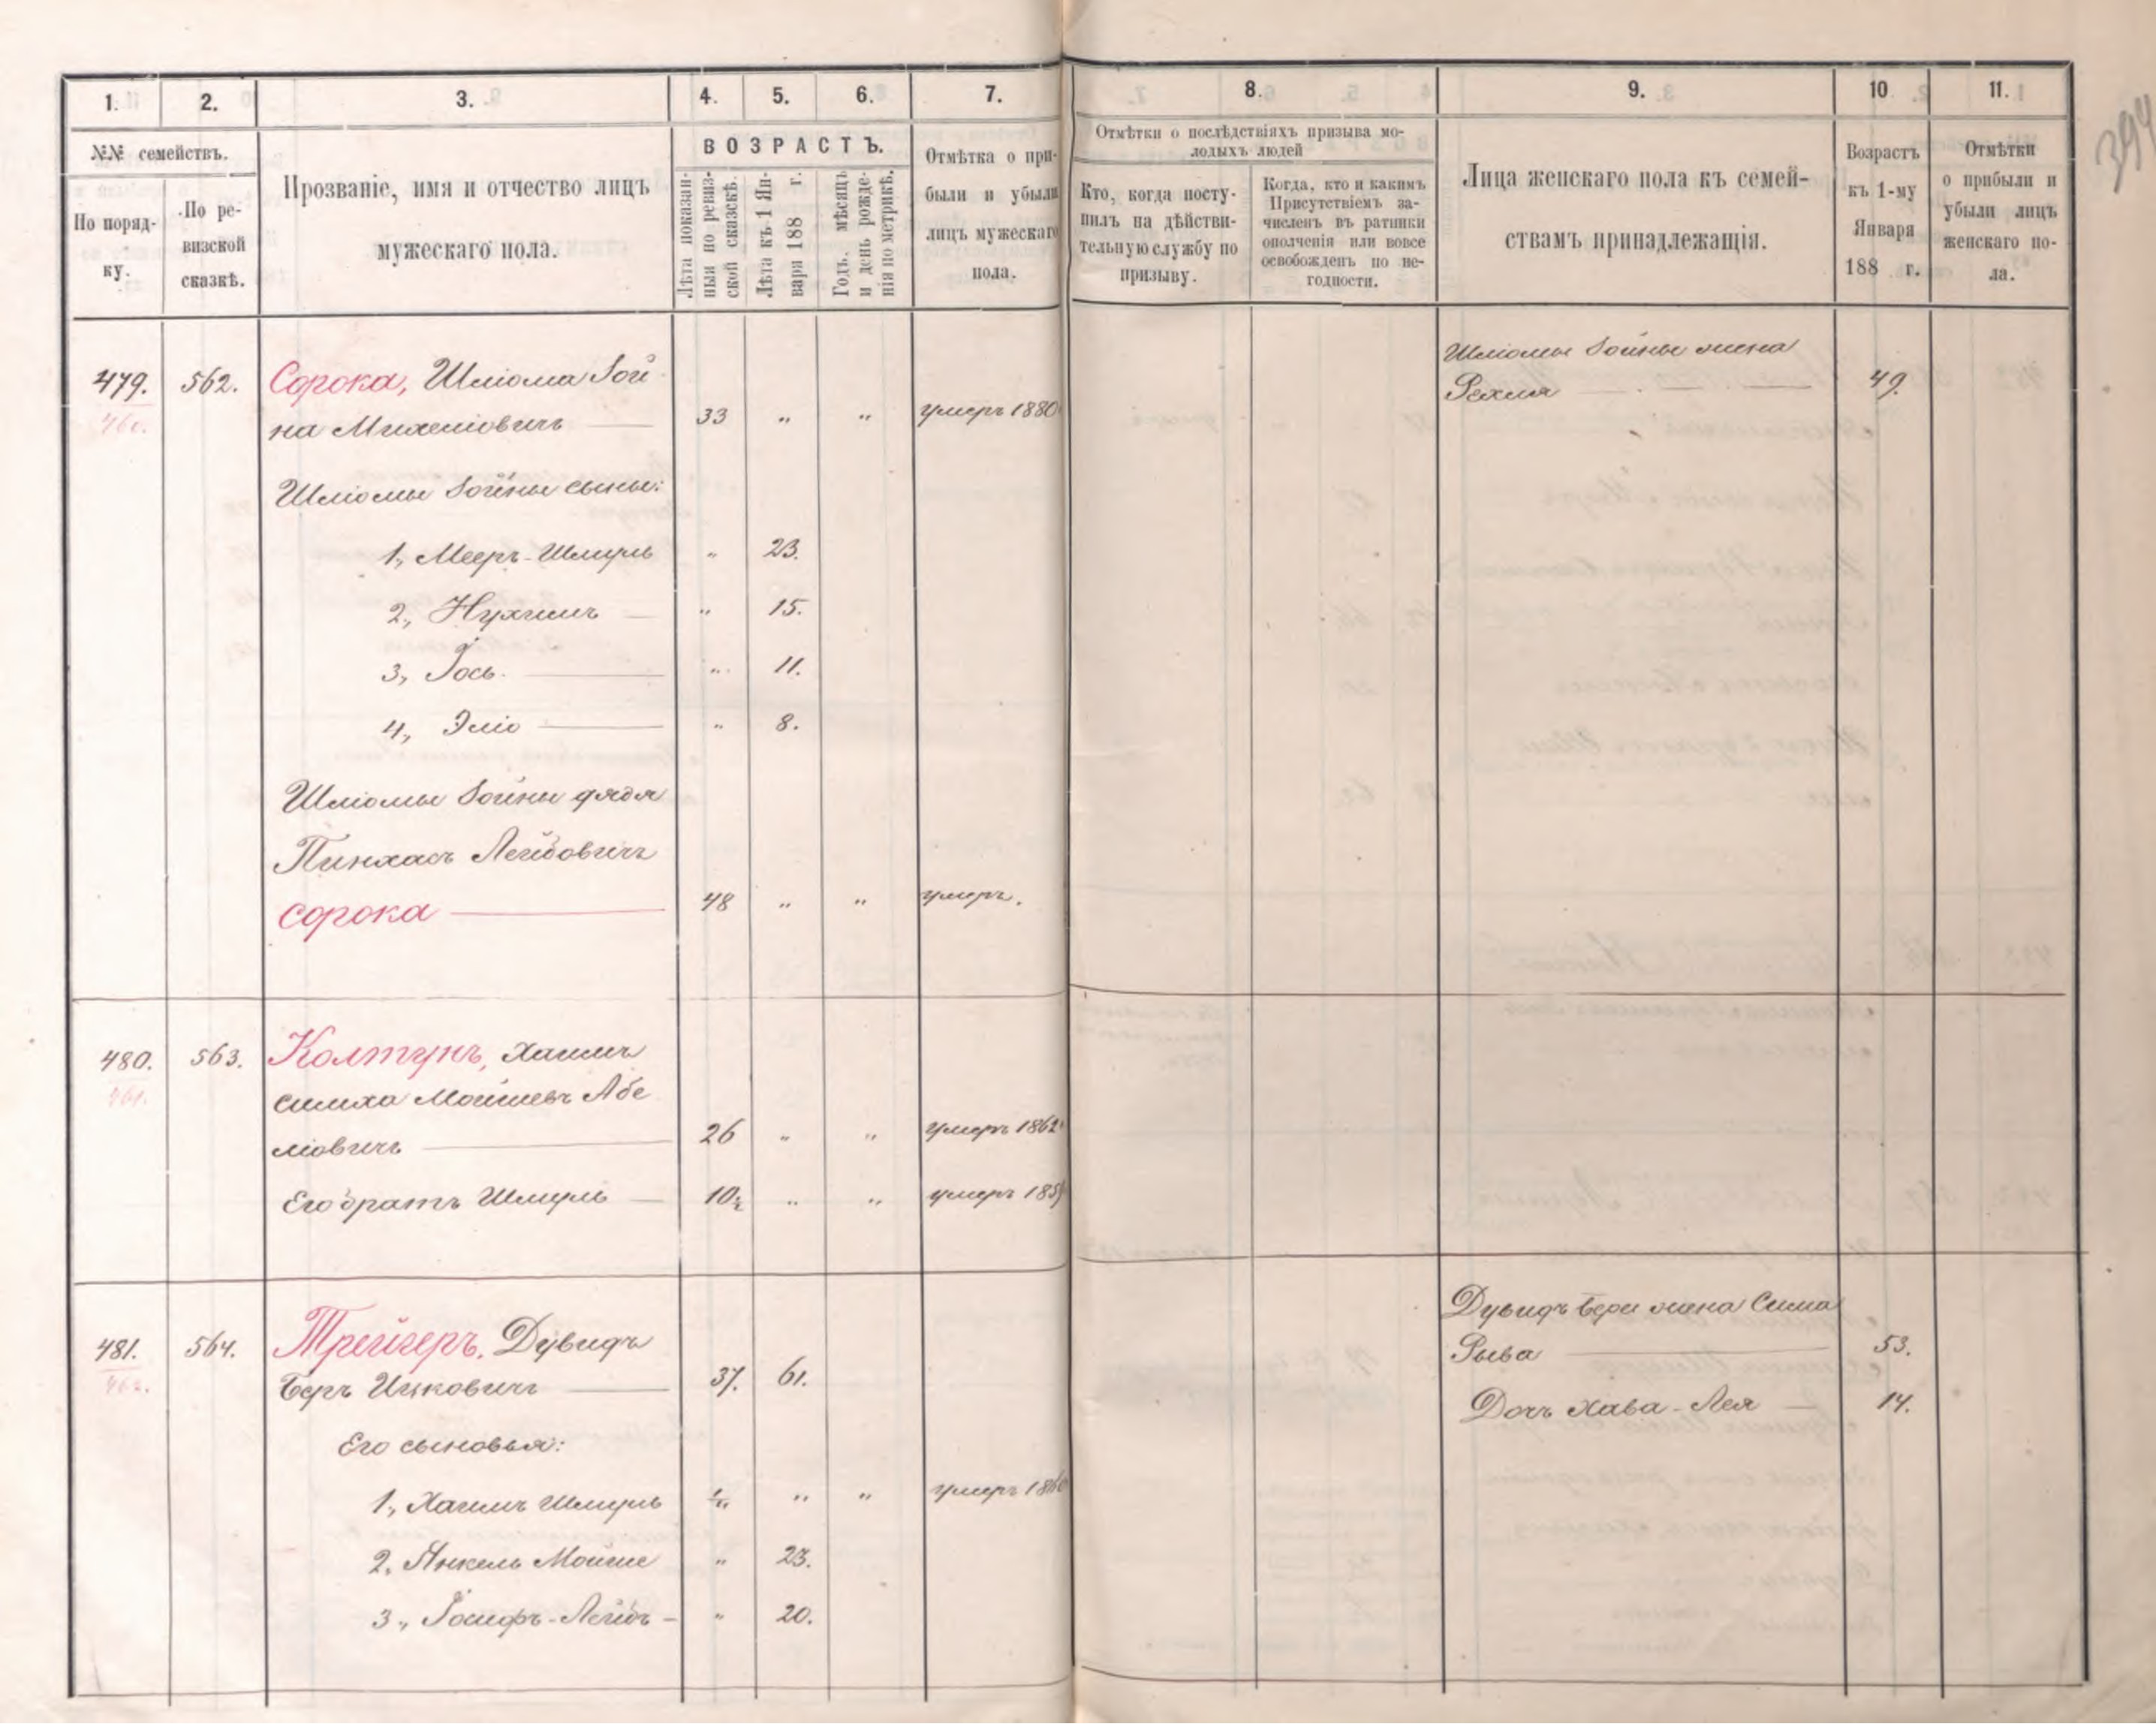 394
1. 2. 3. 4. 5. 6. 7. 8. 9. 10 11.
№№ семействъ.
По поряд-
ку.
По ре-
визской
сказкѣ.
Прозваніе, имя и отчество лицъ
мужескаго пола.
ВОЗРАСТЪ.
Лѣта показан-
ныя по ревиз-
ской сказкѣ.
Лѣта къ 1 Ян-
варя 188 г.
Годъ, мѣсяцъ
и день рожде-
нія по метрикѣ.
Отмѣтка о при-
были и убыли
лицъ мужескаго
пола.
Отмѣтки о послѣдствіяхъ призыва мо-
лодыхъ людей
Кто, когда посту-
пилъ на дѣйстви-
тельную службу по
призыву.
Когда, кто и какимъ
Присутствіемъ за-
численъ въ ратники
ополченія или вовсе
освобожденъ по не-
годности.
Лица женскаго пола къ семей-
ствамъ принадлежащія.
Возрастъ
къ 1-му
Января
188 г.
Отмѣтки
о прибыли и
убыли лицъ
женскаго по-
ла.
479. 562. Сорока, Шліома Зой
460. на Михеліовичъ 33 „ „ умеръ 1880
Шліомы Зойны сыны:
1, Мееръ-Шмуль „ 23.
2, Нухимъ „ 15.
3, Іось. „ 11.
4, Эліо „ 8.
Шліомы Зойны дядя
Пинхасъ Лейбовичъ
Сорока 48 „ „ умеръ.
Шліомы Зойны жена
Рехля 49.
480. 563. Колтунъ, Хаимъ
461. Симха Мошковъ Абе
ліовичъ 26 „ „ умеръ 1862
Его братъ Шмуль 10½ „ „ умеръ 185
481. 564. Трейгеръ, Дувидъ
462. Беръ Ицковичъ 37. 61.
Его сыновья:
1, Хаимъ Шмуль „ „ умеръ 1860
2, Янкель Мойше „ 23.
3, Іосифъ-Лейбъ - „ 20.
Дувидъ Бера жена Сима
Рыва 53.
Дочь Хава-Лея 14.